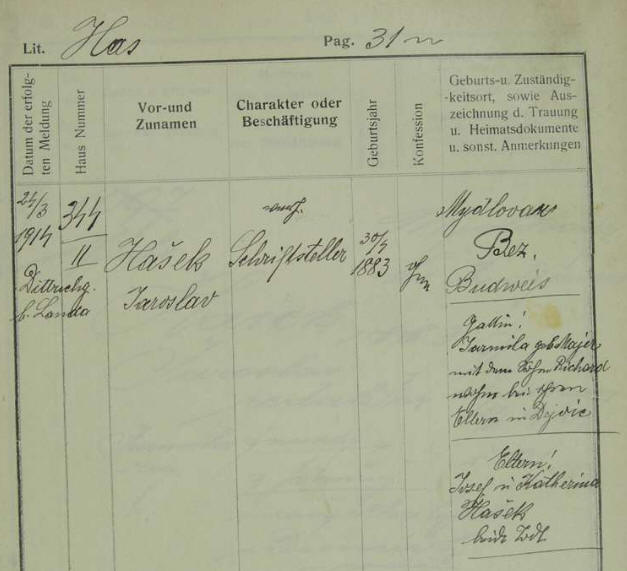 Lit. Has
Pag. 31
Datum der erfolg-
ten Meldung
Haus Nummer
Vor- und
Zunamen
Charakter oder
Beschäftigung
Geburtsjahr
Konfession
Geburts- u. Zuständig-
-keitsort, sowie Aus-
zeichnung d. Trauung
u. Heimatsdokumente
u. sonst. Anmerkungen
24/3
1914
Dittrichg.
b. Landa
344
II
Hašek
Jaroslav
Schriftsteller
1883
Mydlovar
Bez.
Budweis
Gattin!
Jarmila geb Majer
mit dem Sohn Richard
bei ihren
Eltern in Dejvic
Eltern!
Josef u Katherina
Hašek
beide